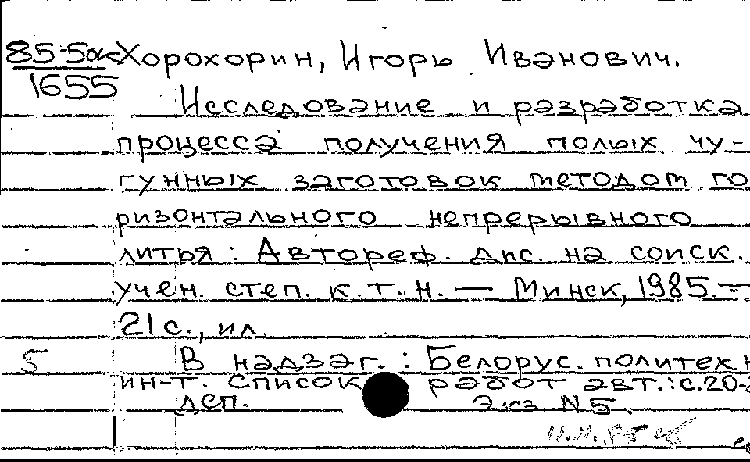 85-5ак Хорохорин, Игорь Иванович.
1655
Исследование и разработка
процесса получения полых чу-
гунных заготовок методом го
ризонтального непрерывного
литья : Автореф. дис. на соиск.
учен. степ. к. т. н. — Минск, 1985. —
21 с., ил.
5 В надзаг. : Белорус. политехн
ин-т. Список работ авт.: с. 20-
дсп. Экз N 5.